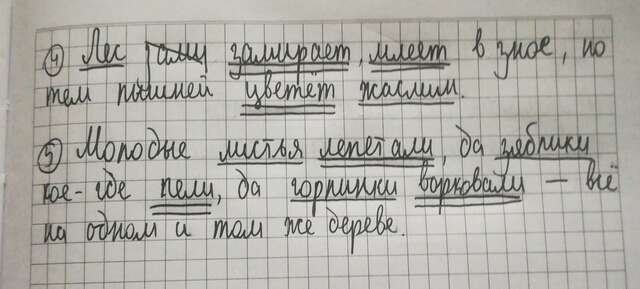 4) Лес замирает, млеет в зное, но
тем пышней цветёт жасмин.
5) Молодые листья лепетали, да зяблики
кое-где пели, да горлинки ворковали – всё
на одном и том же дереве.